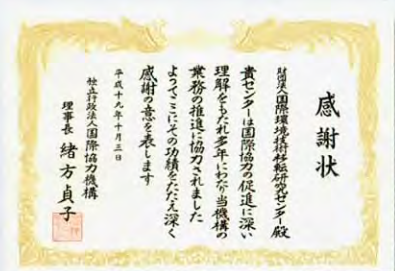 感謝状
財団法人国際環境技術移転研究センター殿
貴センターは国際協力の促進に深い
理解をもたれ多年にわたり当機構の
業務の推進に協力されました
よってここにその功績をたたえ深く
感謝の意を表します
平成十九年十月三日
独立行政法人国際協力機構
理事長 緒方貞子